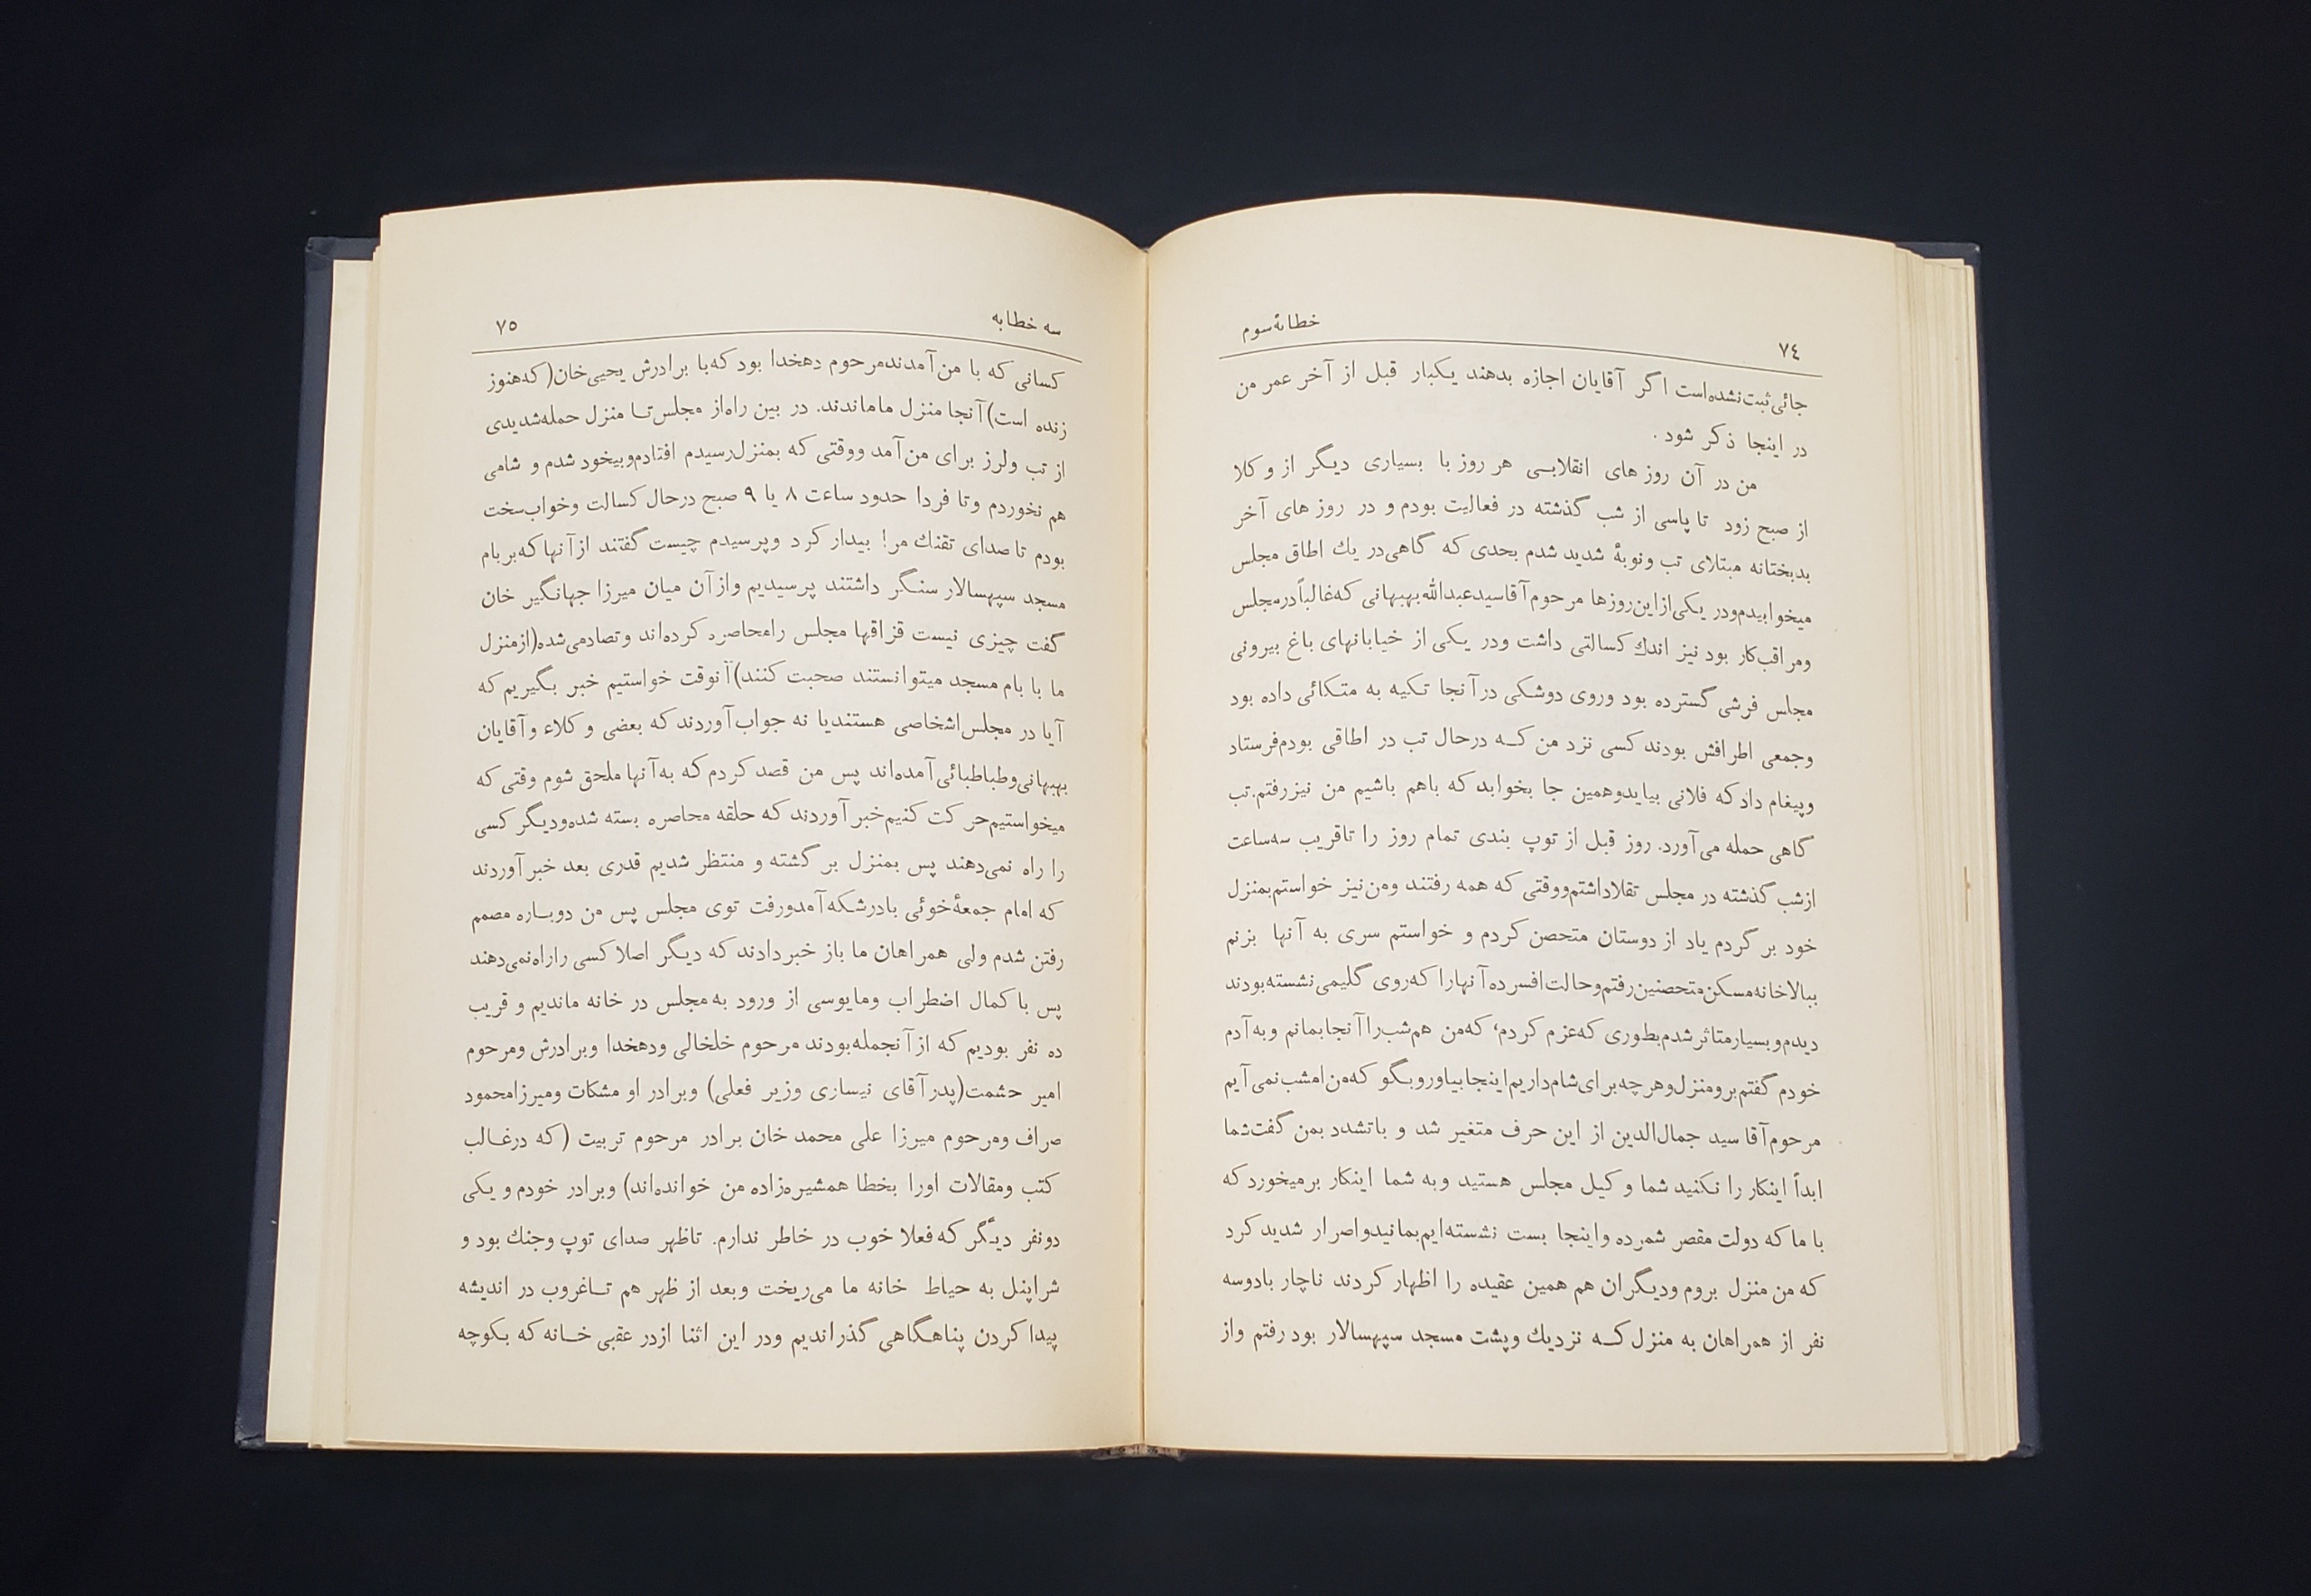 ٧٤
خطابهٔ سوم
جائی ثبت نشده است اگر آقایان اجازه بدهند یکبار قبل از آخر عمر من
در اینجا ذکر شود .
من در آن روز های انقلابی هر روز با بسیاری دیگر از و کلا
از صبح زود تا پاسی از شب گذشته در فعالیت بودم و در روز های آخر
بدبختانه مبتلای تب ونوبهٔ شدید شدم بحدی که گاهی در یك اطاق مجلس
میخوابیدم ودر یکی از این روزها مرحوم آقا سید عبدالله بهبهانی که غالباً در مجلس
ومراقب کار بود نیز اندك کسالتی داشت ودر یکی از خیابانهای باغ بیرونی
مجلس فرشی گسترده بود وروی دوشکی در آنجا تکیه به متکائی داده بود
وجمعی اطرافش بودند کسی نزد من که درحال تب در اطاقی بودم فرستاد
وپیغام داد که فلانی بیاید وهمین جا بخوابد که باهم باشیم من نیز رفتم. تب
گاهی حمله می آورد. روز قبل از توپ بندی تمام روز را تاقریب سه ساعت
از شب گذشته در مجلس تقلا داشتم ووقتی که همه رفتند ومن نیز خواستم بمنزل
خود بر گردم یاد از دوستان متحصن کردم و خواستم سری به آنها بزنم
ببالاخانه مسکن متحصنین رفتم وحالت افسرده آنها را که روی گلیمی نشسته بودند
دیدم وبسیار متاثر شدم بطوری که عزم کردم، که من هم شب را آنجا بمانم وبه آدم
خودم گفتم برو منزل وهر چه برای شام داریم اینجا بیاور و بگو که من امشب نمی آیم
مرحوم آقا سید جمال الدین از این حرف متغیر شد و باتشدد بمن گفت شما
ابداً اینکار را نکنید شما و کیل مجلس هستید وبه شما اینکار برمیخورد که
با ما که دولت مقصر شمرده واینجا بست نشسته ایم بمانید واصرار شدید کرد
که من منزل بروم ودیگران هم همین عقیده را اظهار کردند ناچار بادوسه
نفر از همراهان به منزل که نزدیك وپشت مسجد سپهسالار بود رفتم واز
سه خطابه
٧٥
کسانی که با من آمدند مرحوم دهخدا بود که با برادرش یحیی خان (که هنوز
زنده است) آنجا منزل ما ماندند. در بین راه از مجلس تا منزل حمله شدیدی
از تب ولرز برای من آمد ووقتی که بمنزل رسیدم افتادم وبیخود شدم و شامی
هم نخوردم وتا فردا حدود ساعت ۸ یا ۹ صبح درحال کسالت وخواب سخت
بودم تا صدای تفنك مرا بیدار کرد وپرسیدم چیست گفتند از آنها که بر بام
مسجد سپهسالار سنگر داشتند پرسیدیم واز آن میان میرزا جهانگیر خان
گفت چیزی نیست قزاقها مجلس را محاصره کرده اند وتصادمی شده (از منزل
ما با بام مسجد میتوانستند صحبت کنند) آنوقت خواستیم خبر بگیریم که
آیا در مجلس اشخاصی هستند یا نه جواب آوردند که بعضی و کلاء و آقایان
بهبهانی وطباطبائی آمده اند پس من قصد کردم که به آنها ملحق شوم وقتی که
میخواستیم حر کت کنیم خبر آوردند که حلقه محاصره بسته شده ودیگر کسی
را راه نمی دهند پس بمنزل بر گشته و منتظر شدیم قدری بعد خبر آوردند
که امام جمعهٔ خوئی بادرشکه آمد ورفت توی مجلس پس من دوباره مصمم
رفتن شدم ولی همراهان ما باز خبر دادند که دیگر اصلا کسی را راه نمی دهند
پس با کمال اضطراب ومایوسی از ورود به مجلس در خانه ماندیم و قریب
ده نفر بودیم که از آنجمله بودند مرحوم خلخالی ودهخدا وبرادرش ومرحوم
امیر حشمت (پدر آقای نیساری وزیر فعلی) وبرادر او مشکات ومیرزا محمود
صراف ومرحوم میرزا علی محمد خان برادر مرحوم تربیت (که درغالب
کتب ومقالات اورا بخطا همشیره زاده من خوانده اند) وبرادر خودم و یکی
دونفر دیگر که فعلا خوب در خاطر ندارم. تاظهر صدای توپ وجنك بود و
شراپنل به حیاط خانه ما می ریخت وبعد از ظهر هم تا غروب در اندیشه
پیدا کردن پناهگاهی گذراندیم ودر این اثنا از در عقبی خانه که بکوچه